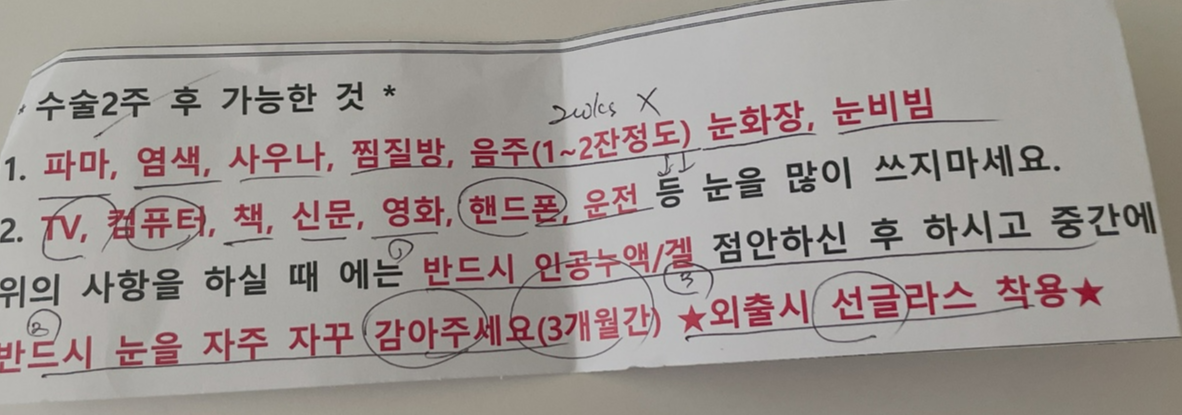 * 수술2주 후 가능한 것 *
2wks X
1. 파마, 염색, 사우나, 찜질방, 음주(1~2잔정도) 눈화장, 눈비빔
2. TV, 컴퓨터, 책, 신문, 영화, 핸드폰, 운전 등 눈을 많이 쓰지마세요.
위의 사항을 하실 때 에는 ① 반드시 인공누액/겔 점안하신 후 하시고 중간에
② ③
반드시 눈을 자주 자꾸 감아주세요(3개월간) ★외출시 선글라스 착용★